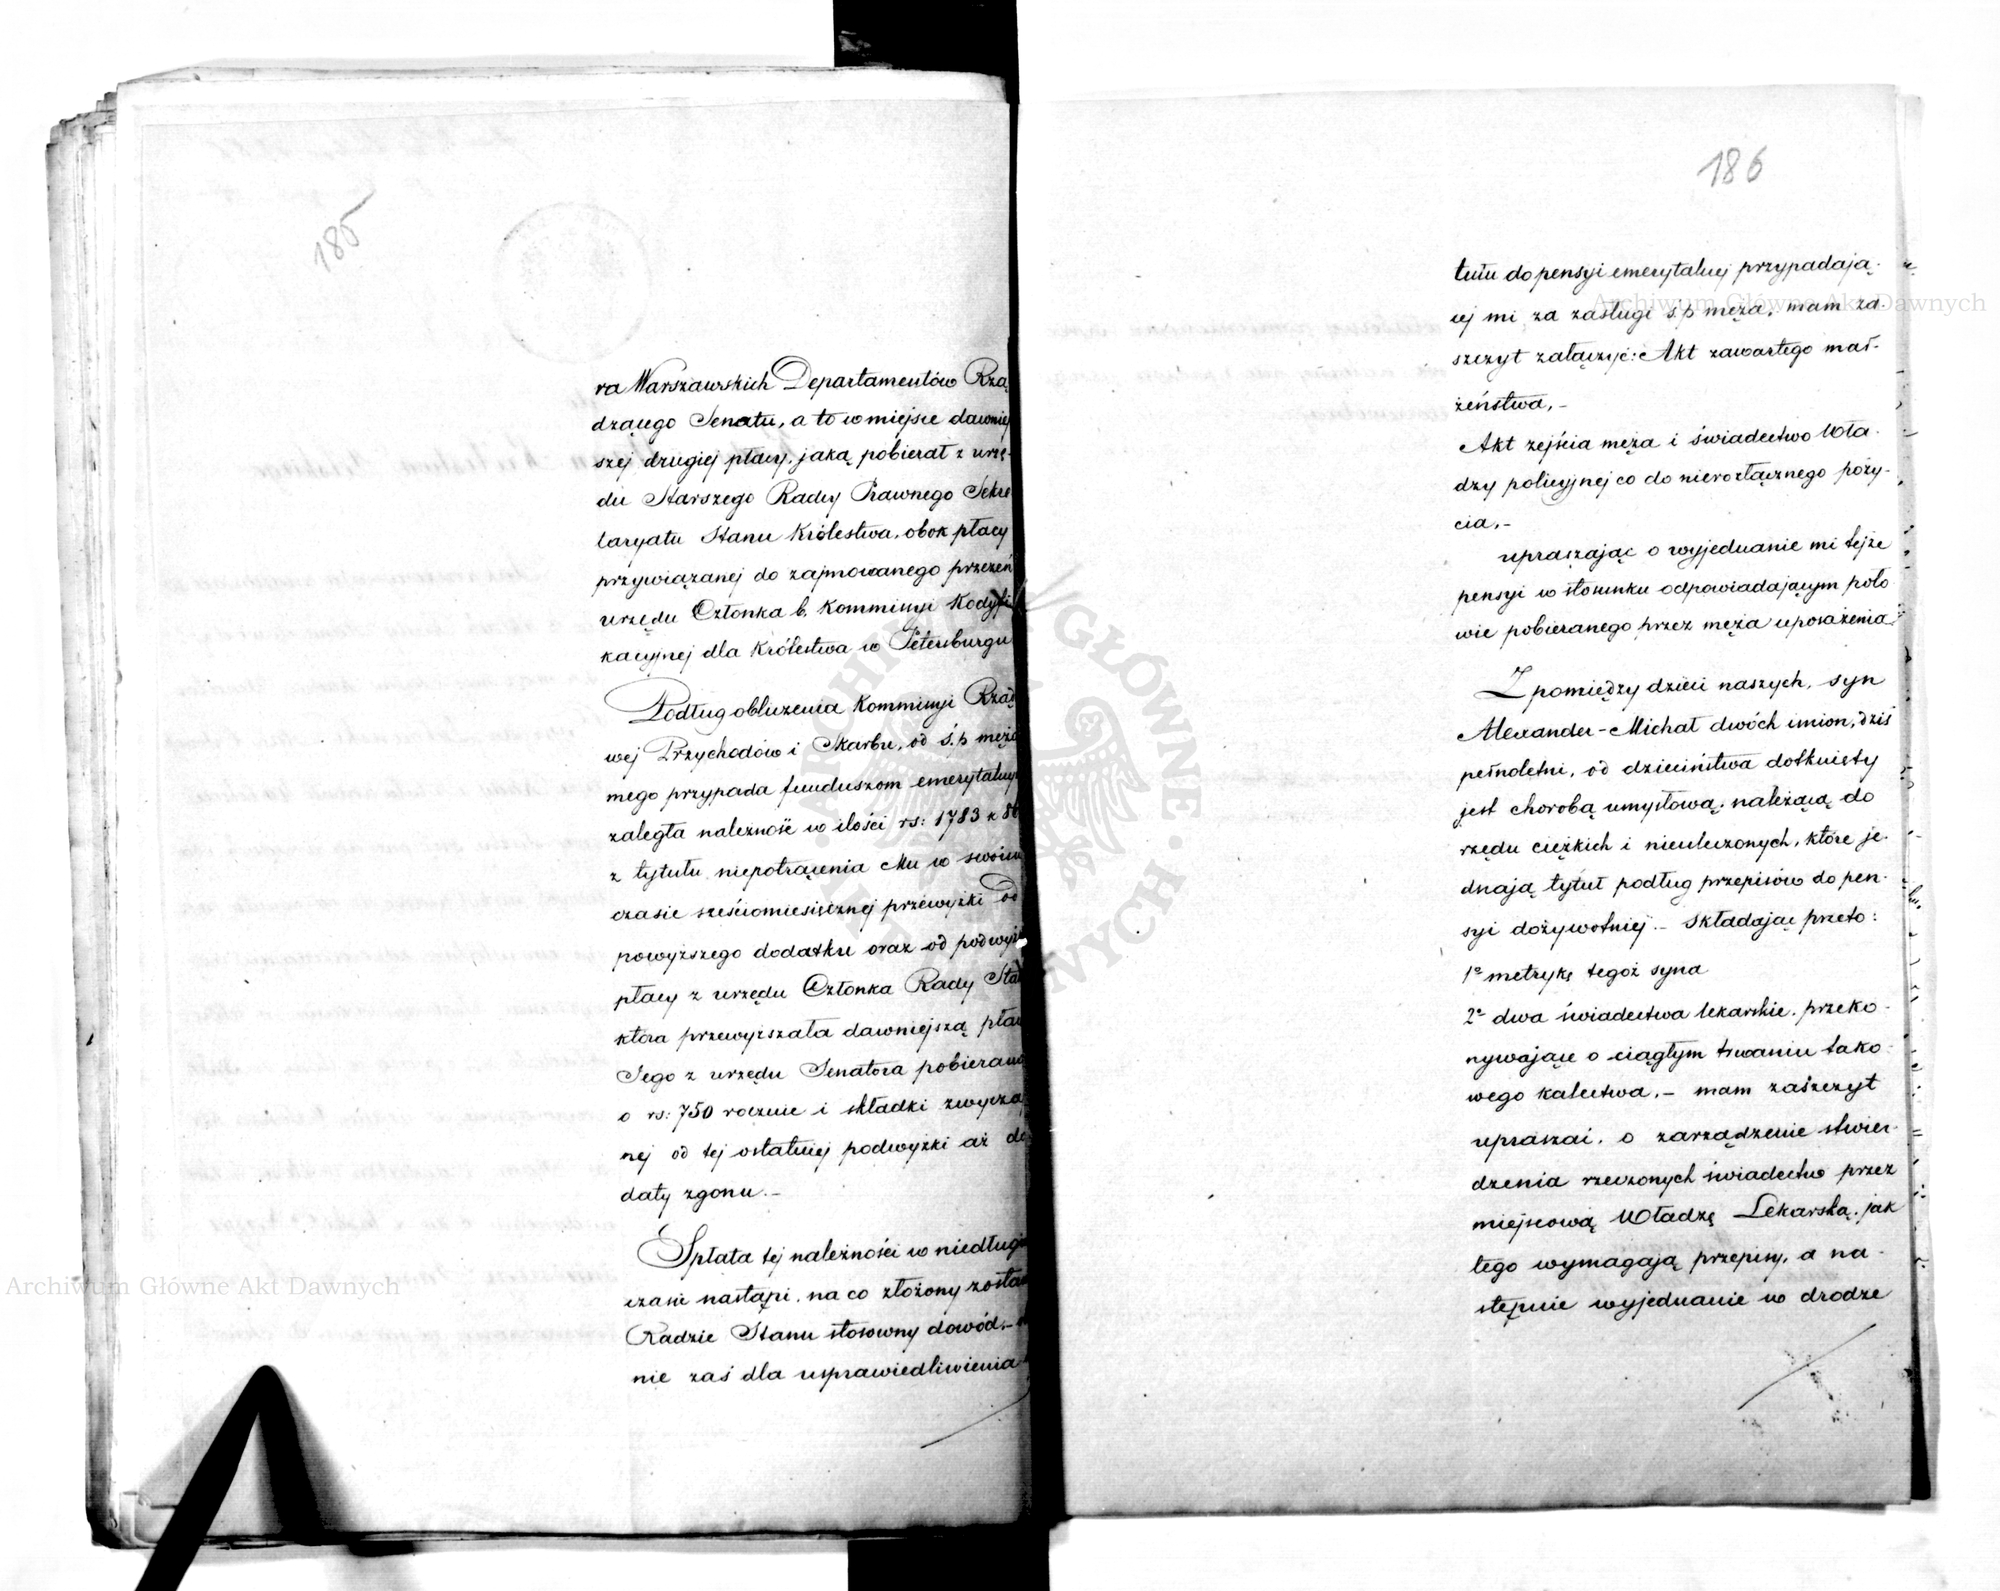 185
ra Warszawskich Departamentów Rzą
dzącego Senatu, a to w miejsce dawniej
szej drugiej płacy, jaką pobierał z urzę-
du Starszego Radcy Prawnego Sekre
taryatu Stanu Królestwa, obok płacy
przywiązanej do zajmowanego przezeń
urzędu Członka b. Kommissyi Kodyfi
kacyjnej dla Królestwa w Petersburgu
Podług obliczenia Kommissyi Rządo
wej Przychodów i Skarbu, od ś.p męża
mego przypada funduszom emerytalnym
zaległa należność w ilości rs: 1783 k 86
z tytułu niepotrącenia Mu w swoim
czasie sześciomiesięcznej przewyżki od
powyższego dodatku oraz od podwyżki
płacy z urzędu Członka Rady Stanu
która przewyższała dawniejszą płacę
Jego z urzędu Senatora pobieraną
o rs: 750 rocznie i składki zwyczaj
nej od tej ostatniej podwyżki aż do
daty zgonu.-
Spłata tej należności w niedługim
czasie nastąpi, na co złożony zostanie
Radzie Stanu stosowny dowód,-
nie zaś dla usprawiedliwienia
186
tułu do pensyi emerytalnej przypadają-
cej mi za zasługi ś.p męża, mam za-
szczyt załączyć: Akt zawartego mał-
żeństwa,-
Akt zejścia męża i świadectwo Wła-
dzy policyjnej co do nierozłącznego poży-
cia,-
upraszając o wyjednanie mi tejże
pensyi w stosunku odpowiadającym poło
wie pobieranego przez męża uposażenia
Z pomiędzy dzieci naszych, syn
Alexander-Michał dwóch imion, dziś
pełnoletni, od dzieciństwa dotknięty
jest chorobą umysłową, należącą do
rzędu ciężkich i nieuleczonych, które je-
dnają tytuł podług przepisów do pen-
syi dożywotniej.- Składając przeto:
1e metrykę tegoż syna
2e dwa świadectwa lekarskie, przeko-
nywające o ciągłym trwaniu tako-
wego kalectwa,- mam zaszczyt
upraszać, o zarządzenie stwier-
dzenia rzeczonych świadectw przez
miejscową Władzę Lekarską, jak
tego wymagają przepisy, a na-
stępnie wyjednanie w drodze
Archiwum Główne Akt Dawnych
Archiwum Główne Akt Dawnych
ARCHIWUM GŁÓWNE AKT DAWNYCH